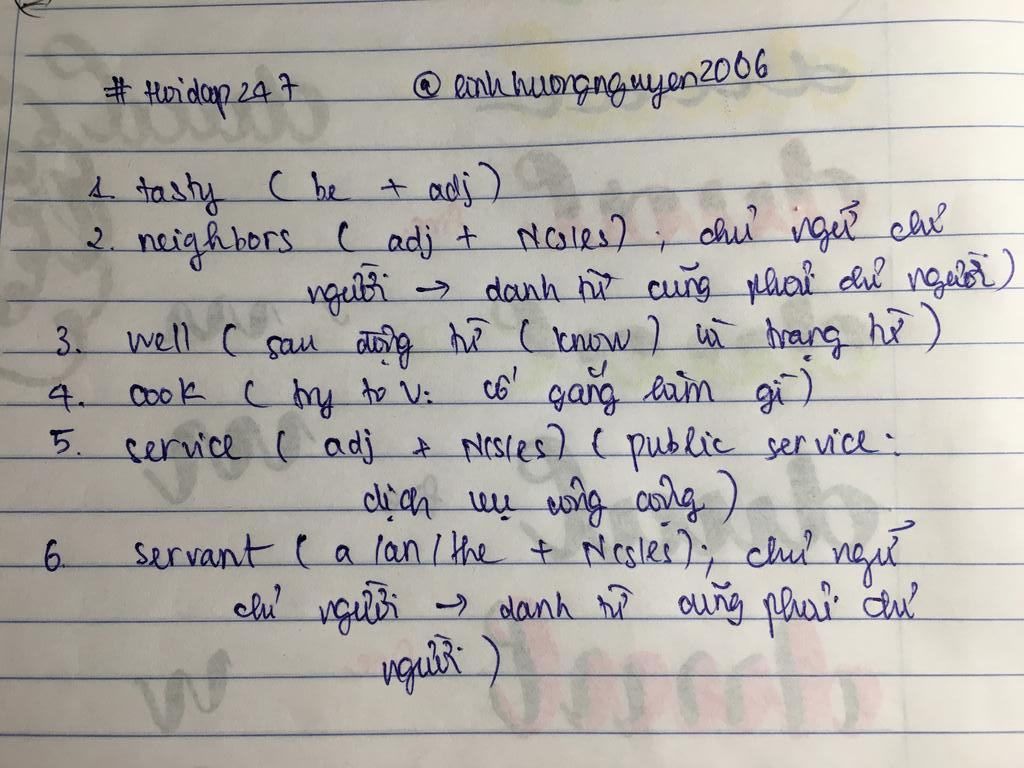 # Hoidap247 @linhhuongnguyen2006
1. tasty ( be + adj )
2. neighbors ( adj + N(s/es) ; chủ ngữ chỉ
người → danh từ cũng phải chỉ người )
3. well ( sau động từ ( know ) là trạng từ )
4. cook ( try to V: cố gắng làm gì )
5. service ( adj + N(s/es) ( public service :
dịch vụ công cộng )
6. servant ( a /an / the + N(s/es) ; chủ ngữ
chỉ người → danh từ cũng phải chỉ
người )